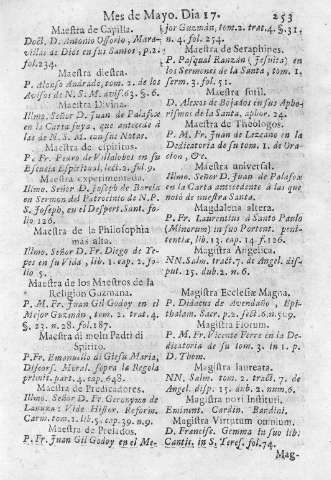 Mes de Mayo. Dia 17. 253
Maestra de Capilla.
Doct. D. Antonio Ossorio, Mara-
villas de Dios en sus Santos, p. 2.
fol. 234.
Maestra diestra.
P. Alonso Andrade, tom. 2. de los
Avisos de N. S. M. avis. 63. §. 6.
Maestra Divina.
Illmo. Señor D. Juan de Palafox
en la Carta suya, que antecede à
las de N. S. M. con sus Notas.
Maestra de espiritus.
P. Fr. Pedro de Villalobos en su
Escuela Espiritual, lect. 2. fol. 9.
Maestra experimentada.
Illmo. Señor D. Joseph de Barcia
en Sermon del Patrocinio de N. P.
S. Joseph, en el Despert. Sant. fo-
lio 126.
Maestra de la Philosophia
mas alta.
Illmo. Señor D. Fr. Diego de Ye-
pes en su Vida, lib. 1. cap. 2. fo-
lio 5.
Maestra de los Maestros de la
Religion Guzmana.
P. M. Fr. Juan Gil Godoy en el
Mejor Guzmán, tom. 2. trat. 4.
§. 23. n. 28. fol. 187.
Maestra di molti Padri di
Spirito.
P. Fr. Emanuello di Giesu Maria,
Discors. Moral. sopra la Regola
primit. part. 4. cap. 648.
Maestra de Predicadores.
Illmo. Señor D. Fr. Geronymo de
Lanuza: Vide Histor. Reform.
Carm. tom. 1. lib. 5. cap. 39. n. 9.
Maestra de Prelados.
P. Fr. Juan Gil Godoy en el Me-
jor Guzmán, tom. 2. trat. 4. §. 31.
n. 4. fol. 254.
Maestra de Seraphines.
P. Pasqual Ranzón (Jesuita) en
los Sermones de la Santa, tom. 1.
serm. 3. fol. 51.
Maestra sotil.
D. Alexos de Bojados en sus Apho-
rismos de la Santa, aphor. 24.
Maestra de Theologos.
P. M. Fr. Juan de Lezano en la
Dedicatoria de su tom. 1. de Ora-
cion, &c.
Maestra universal.
Illmo. Señor D. Juan de Palafox
en la Carta antecedente à las que
notò de nuestra Santa.
Magdalena altera.
P. Fr. Laurentius à Santo Paulo
(Minorum) in suo Portent. peni-
tentiæ, lib. 13. cap. 14. f. 126.
Magistra Angelica.
NN. Salm. tract. 7. de Angel. dis-
put. 15. dub. 2. n. 6.
Magistra Ecclesiæ Magna.
P. Didacus de Avendaño, Epi-
thalam. Sacr. p. 2. sect. 6. n. 909.
Magistra Fiorum.
P. M. Fr. Vicente Ferre en la De-
dicatoria de su tom. 3. in 1. p.
D. Thom.
Magistra laureata.
NN. Salm. tom. 2. tract. 7. de
Angel. disp. 15. dub. 2. num. 6.
Magistra novi Instituti.
Eminent. Cardin. Bardini.
Magistra Virtutum omnium.
D. Francisc. Gemma in suo lib.
Cantic. in S. Teres. fol. 74.
Mag-